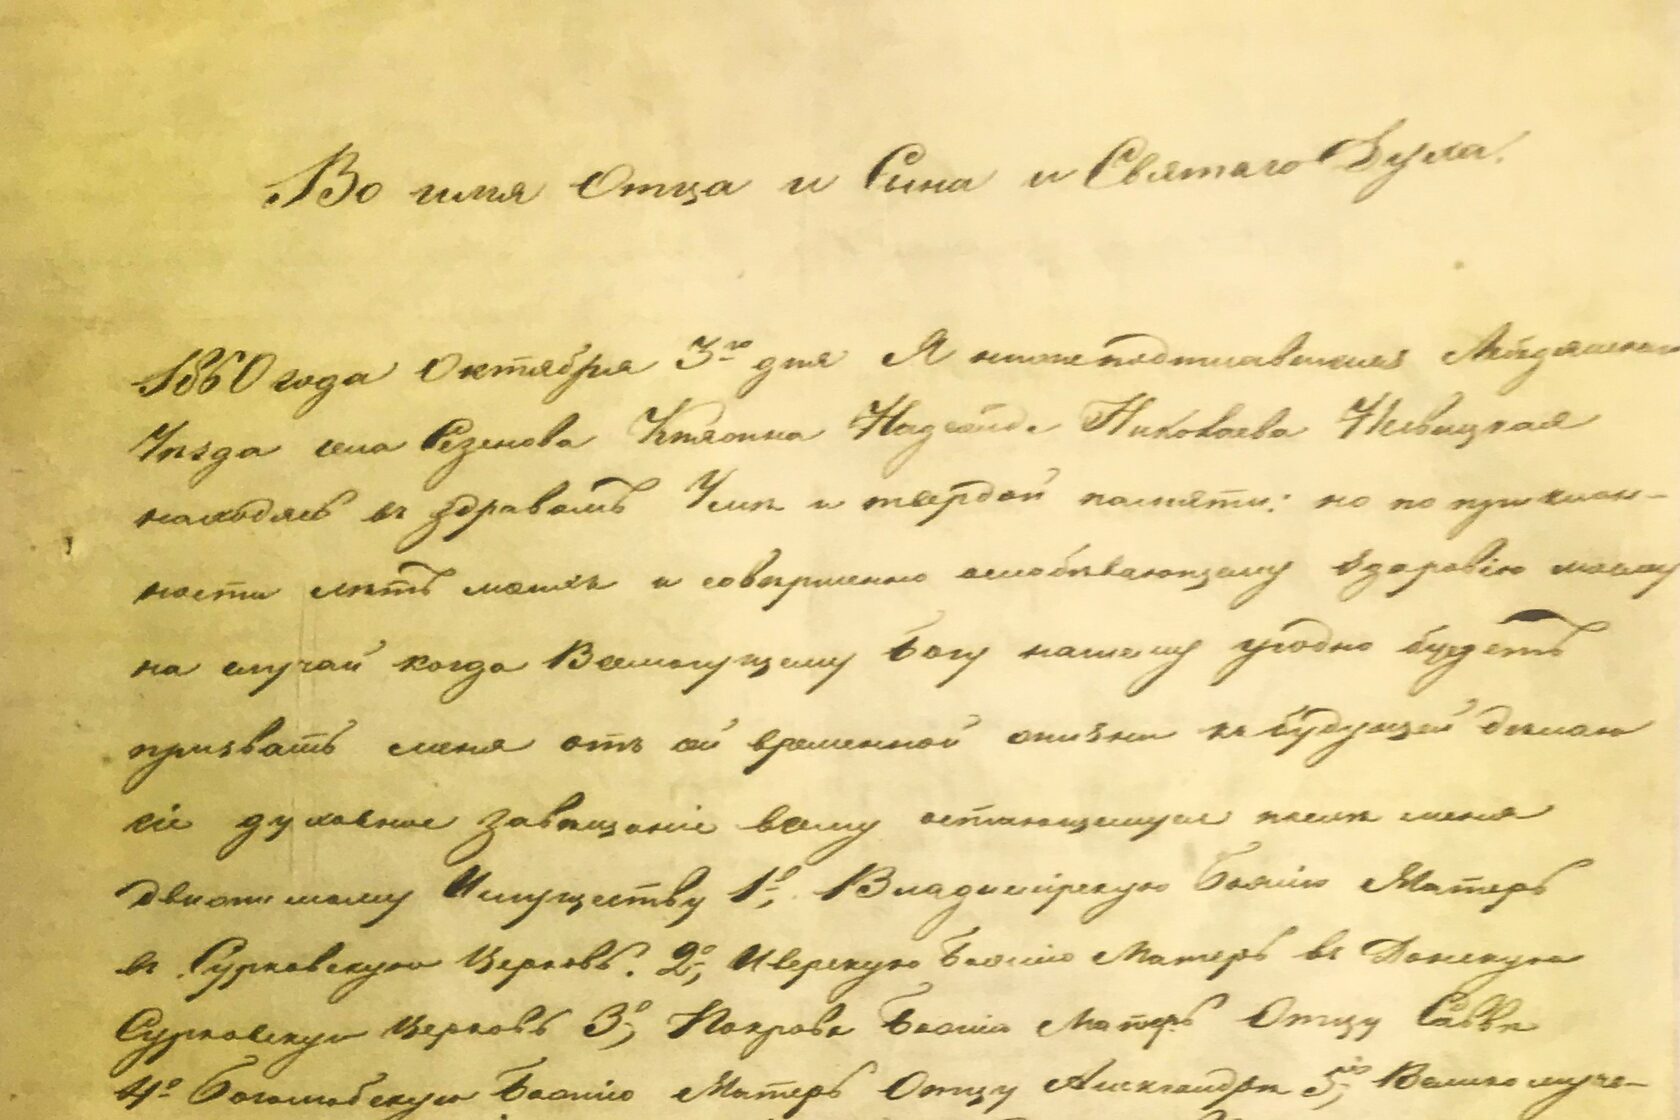 Во имя Отца и Сына и Святаго Духа.
1860 года Октября 3го дня Я нижеподписавшаяся
Уѣзда села Княжна Надежда Николаева
находясь въ здравомъ Умѣ и твердой памяти: но по преклон-
ности лѣтъ моихъ и совершенно ослабѣвающему здоровію моему
на случай когда Всемогущему Богу нашему угодно будетъ
призвать меня отъ сей временной жизни къ будущей дѣлаю
сіе духовное завѣщаніе всему остающемуся послѣ меня
движимому Имуществу 1е, Владимірскую Божію Матерь
въ Сурковскую Церковь. 2е, Иверскую Божію Матерь въ Донскую
Сурковскую Церковь 3е, Покрова Божіи Матерь Отцу Саввѣ
4е Боголюбскую Божію Матерь Отцу Александрѣ 5е, Великомуче-